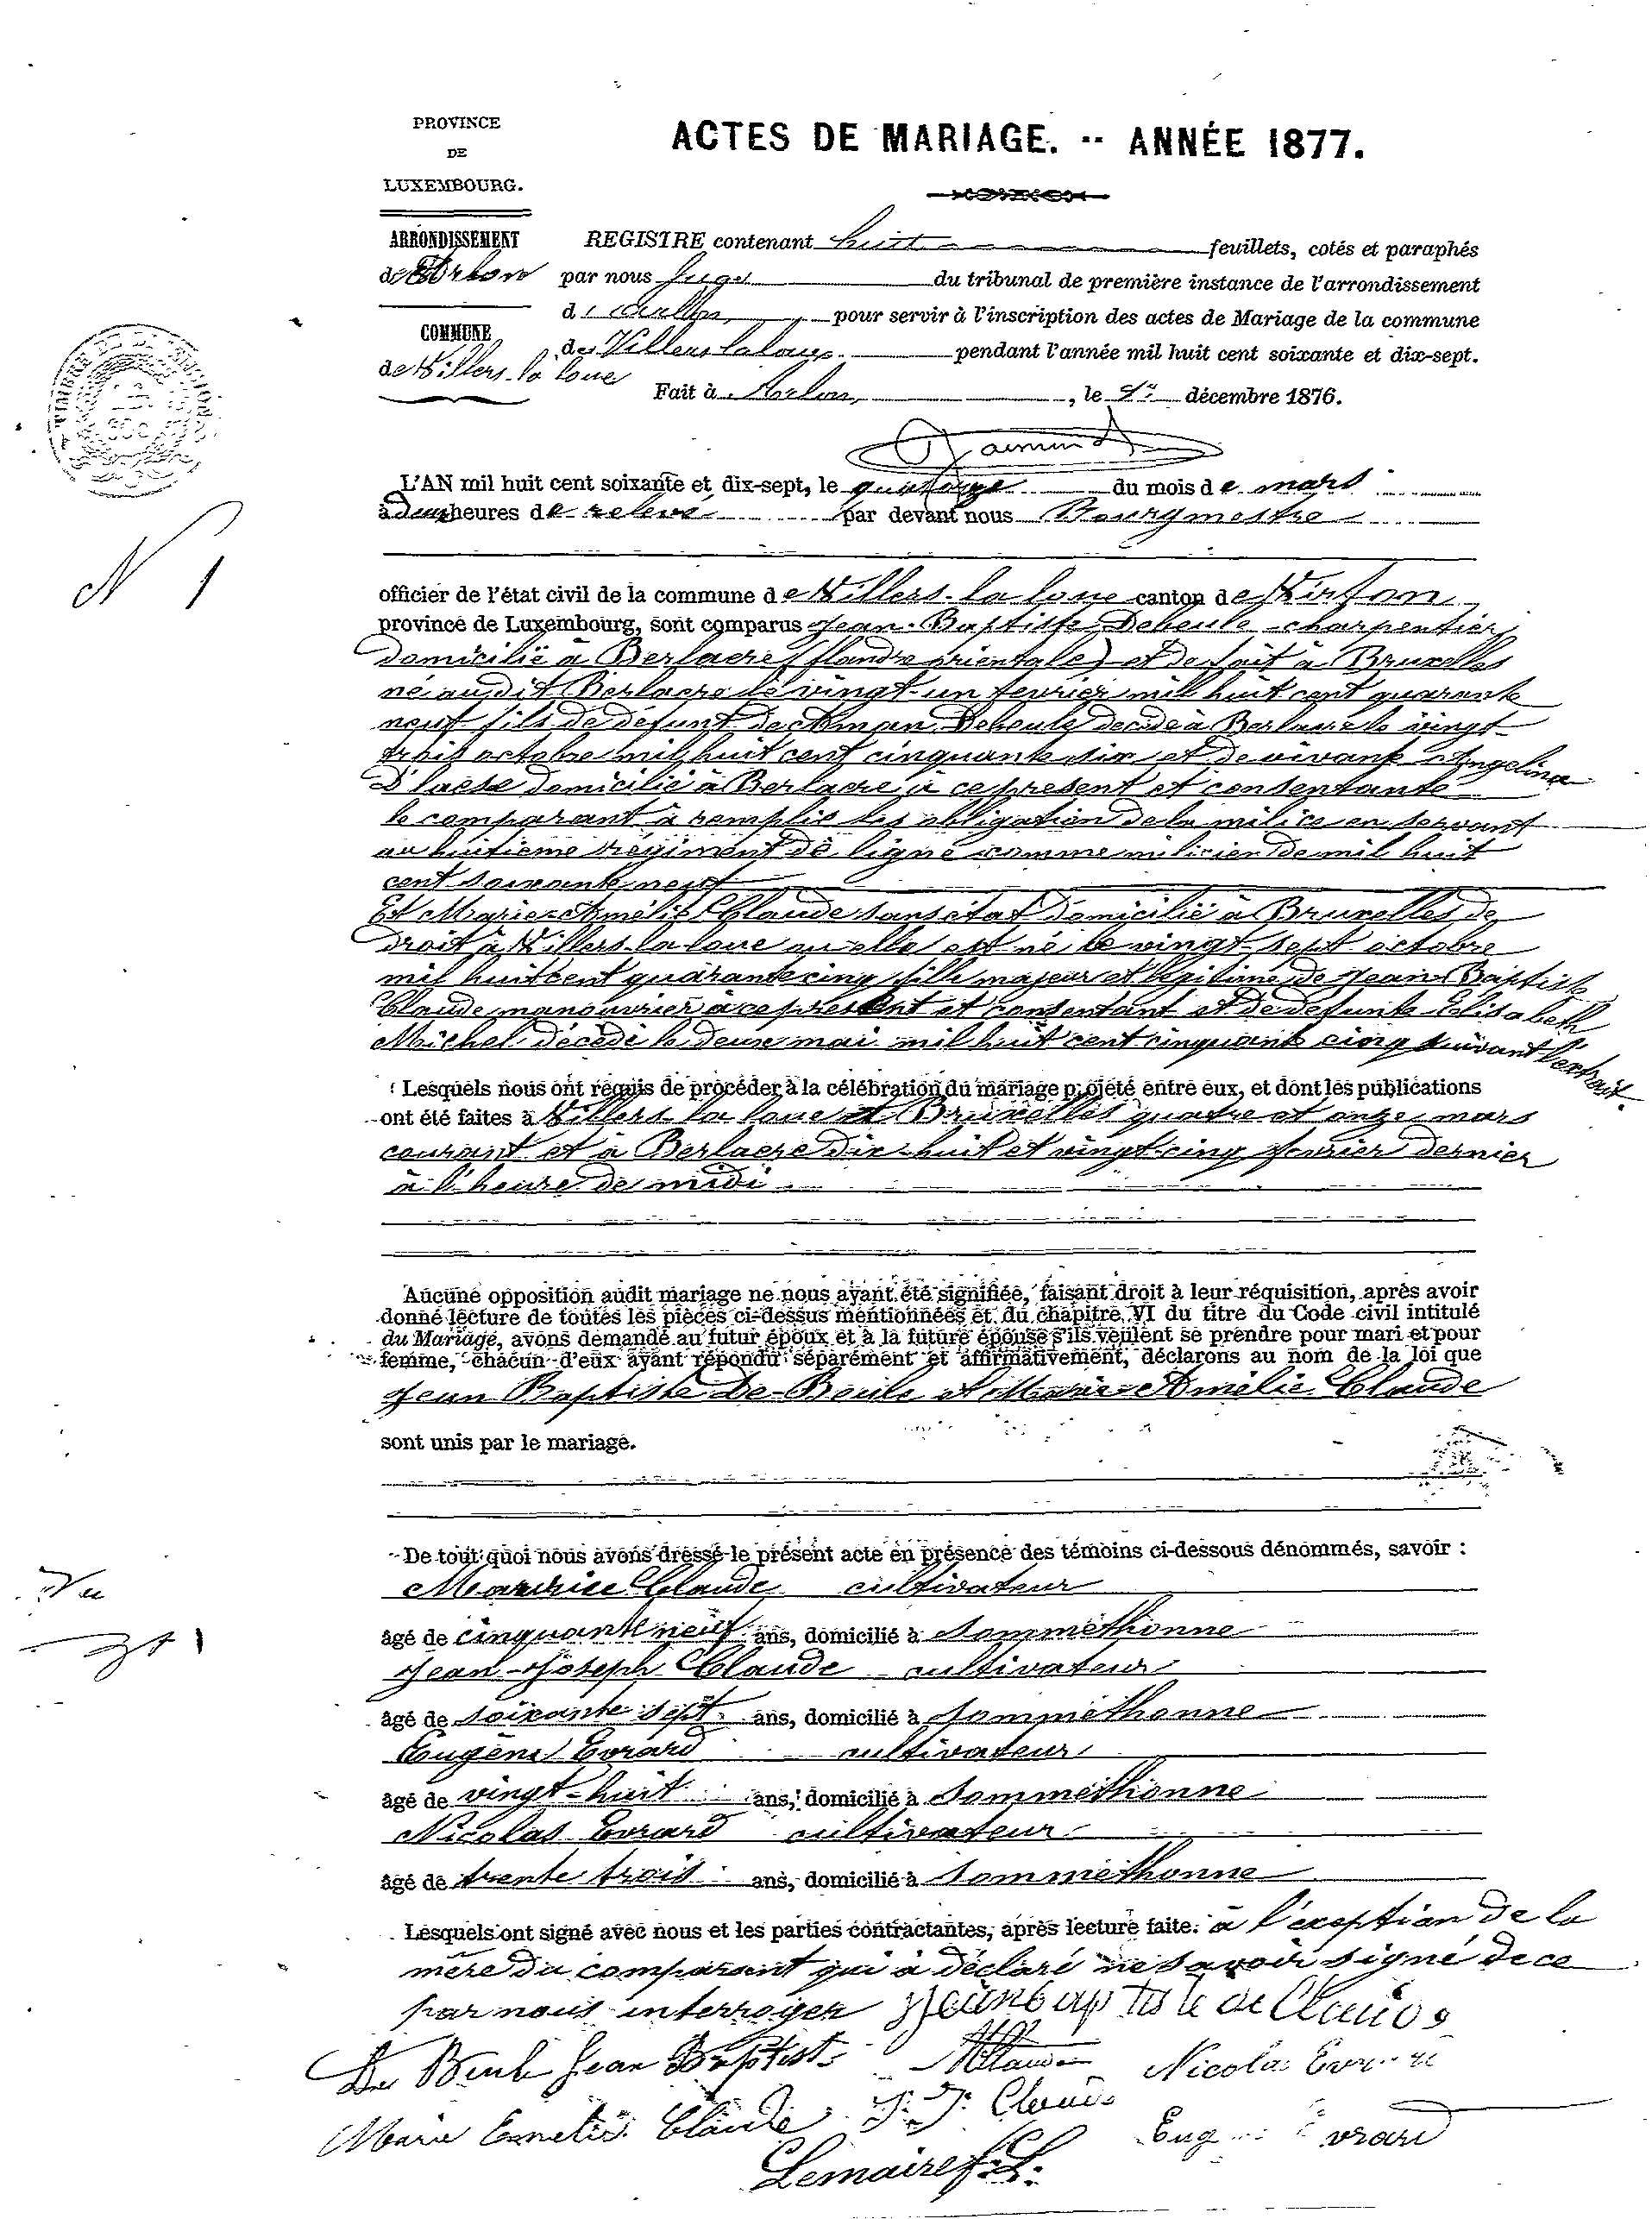 PROVINCE
DE
LUXEMBOURG.
ACTES DE MARIAGE. -- ANNÉE 1877.
ARRONDISSEMENT
de Arlon
COMMUNE
de Villers-la loue
REGISTRE contenant huit feuillets, cotés et paraphés
par nous Juge du tribunal de première instance de l'arrondissement
d'Arlon, pour servir à l'inscription des actes de Mariage de la commune
de Villers la loue pendant l'année mil huit cent soixante et dix-sept.
Fait à Arlon, le décembre 1876.
L'AN mil huit cent soixante et dix-sept, le quatorze du mois de mars
à Deux heures de relevé par devant nous Bourgmestre
N 1
officier de l'état civil de la commune de Villers-la loue canton de Virton
province de Luxembourg, sont comparus Jean-Baptiste Debeule charpentier
domicilié à Berlaere (flandre orientale) et de fait à Bruxelles
né audit Berlaere le vingt-un fevrier mil huit cent quarante
neuf fils de défunt Debeule decidé à Berlaere le vingt
trois octobre mil huit cent cinquante six et de vivante Angelina
D'haese domicilié à Berlaere à ce present et consentante
le comparant à remplie les obligation de la milice en servant
au huitieme régiment de ligne comme milicien de mil huit
cent soixante neuf
Et Marie-Amélie Claude sans état domicilié à Bruxelles de
droit à Villers-la-loue ou elle est né le vingt-sept octobre
mil huit cent quarante cinq fille majeur et légitime de Jean Baptiste
Claude manouvrier à ce present et consentant et de defunte Elisabeth
Michel décédé le deux mai mil huit cent cinquante cinq suivant l'extrait.
Lesquels nous ont requis de procéder à la célébration du mariage projeté entre eux, et dont les publications
ont été faites à Villers la loue et Bruxelles quatre et onze mars
courant et à Berlaere dix-huit et vingt-cinq fevrier dernier
à l'heure de midi
Aucune opposition audit mariage ne nous ayant été signifiée, faisant droit à leur réquisition, après avoir
donné lecture de toutes les pièces ci-dessus mentionnées et du chapitre VI du titre du Code civil intitulé
du Mariage, avons demandé au futur époux et à la future épouse s'ils veulent se prendre pour mari et pour
femme, chacun d'eux ayant répondu séparément et affirmativement, déclarons au nom de la loi que
Jean Baptiste De-Beule et Marie-Amélie Claude
sont unis par le mariage.
De tout quoi nous avons dressé le présent acte en présence des témoins ci-dessous dénommés, savoir :
Maurice Claude cultivateur
Vu
âgé de cinquante neuf ans, domicilié à Sommethonne
Jean-Joseph Claude cultivateur
âgé de soixante sept ans, domicilié à Sommethonne
Eugène Evrard cultivateur
âgé de vingt-huit ans, domicilié à Sommethonne
Nicolas Evrard cultivateur
âgé de trente trois ans, domicilié à Sommethonne
Lesquels ont signé avec nous et les parties contractantes, après lecture faite. à l'exeption de la
mère du comparant qui à déclaré ne savoir signé de ce
par nous interroger
De Beule Jean Baptiste Nicolas Evrard
Marie Emelie Claude J. J. Claude Eugène Evrard
Lemaire f.f.